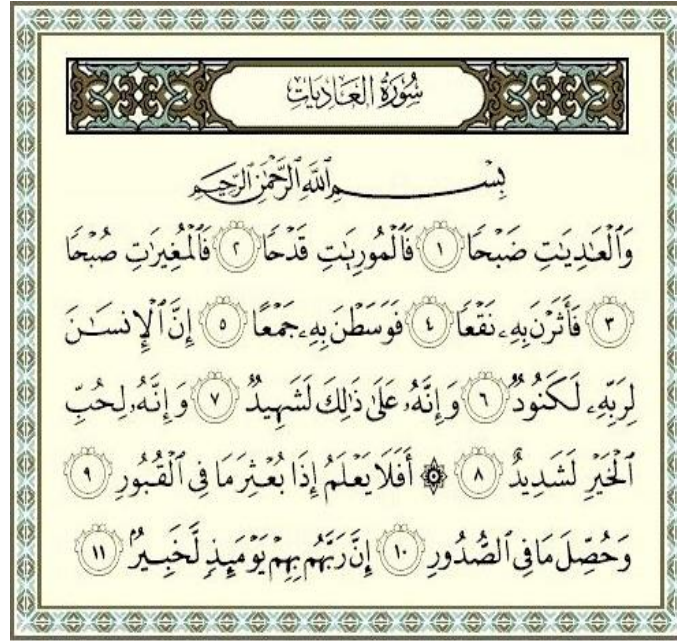 سُورَةُ العَادِيَاتِ
بِسْمِ ٱللَّهِ ٱلرَّحْمَٰنِ ٱلرَّحِيمِ
وَٱلْعَٰدِيَٰتِ ضَبْحًا ١ فَٱلْمُورِيَٰتِ قَدْحًا ٢ فَٱلْمُغِيرَٰتِ صُبْحًا
٣ فَأَثَرْنَ بِهِۦ نَقْعًا ٤ فَوَسَطْنَ بِهِۦ جَمْعًا ٥ إِنَّ ٱلْإِنسَٰنَ
لِرَبِّهِۦ لَكَنُودٌ ٦ وَإِنَّهُۥ عَلَىٰ ذَٰلِكَ لَشَهِيدٌ ٧ وَإِنَّهُۥ لِحُبِّ
ٱلْخَيْرِ لَشَدِيدٌ ٨ ۞ أَفَلَا يَعْلَمُ إِذَا بُعْثِرَ مَا فِى ٱلْقُبُورِ ٩
وَحُصِّلَ مَا فِى ٱلصُّدُورِ ١٠ إِنَّ رَبَّهُم بِهِمْ يَوْمَئِذٍ لَّخَبِيرٌۢ ١١